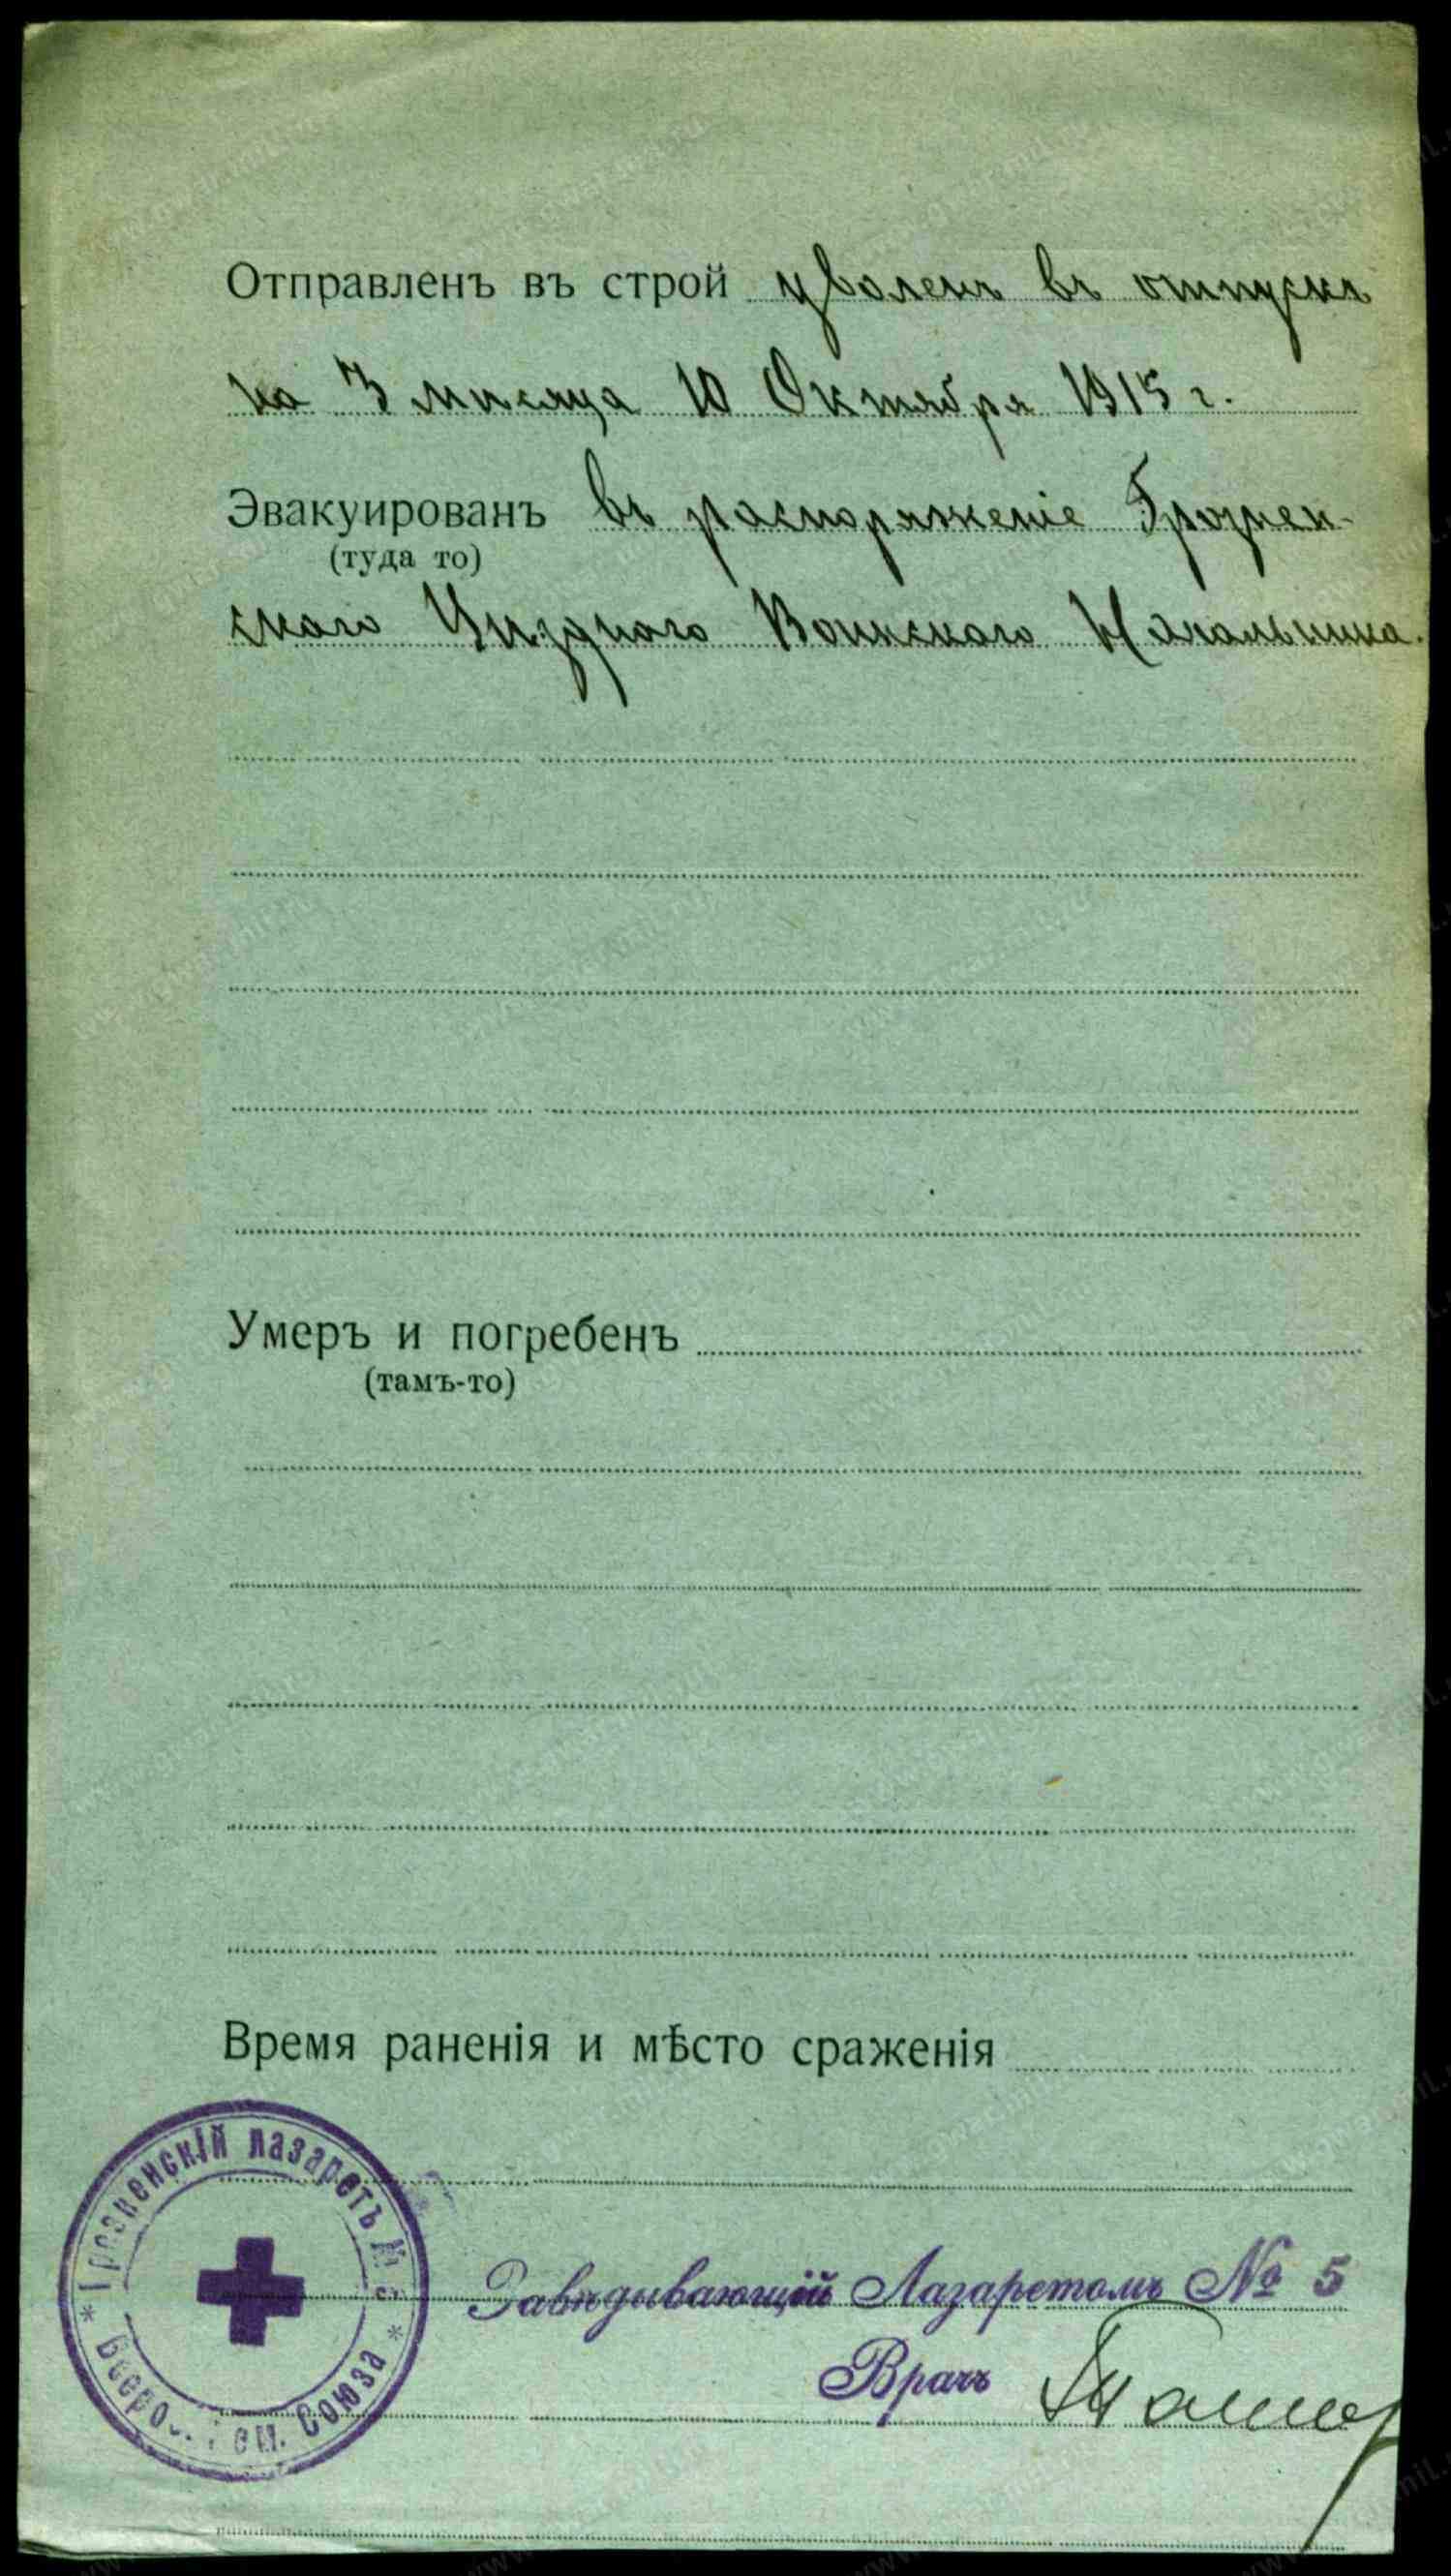 Отправленъ въ строй уволенъ въ отпускъ
на 3 мѣсяца 10 Октября 1915 г.
Эвакуированъ въ распоряженіе Грознен-
(туда то)
скаго Уѣзднаго Воинскаго Начальника.
Умеръ и погребенъ
(тамъ-то)
Время раненія и мѣсто сраженія
Грозненскій лазаретъ №
Союза
Завѣдывающій Лазаретомъ № 5
Врачъ